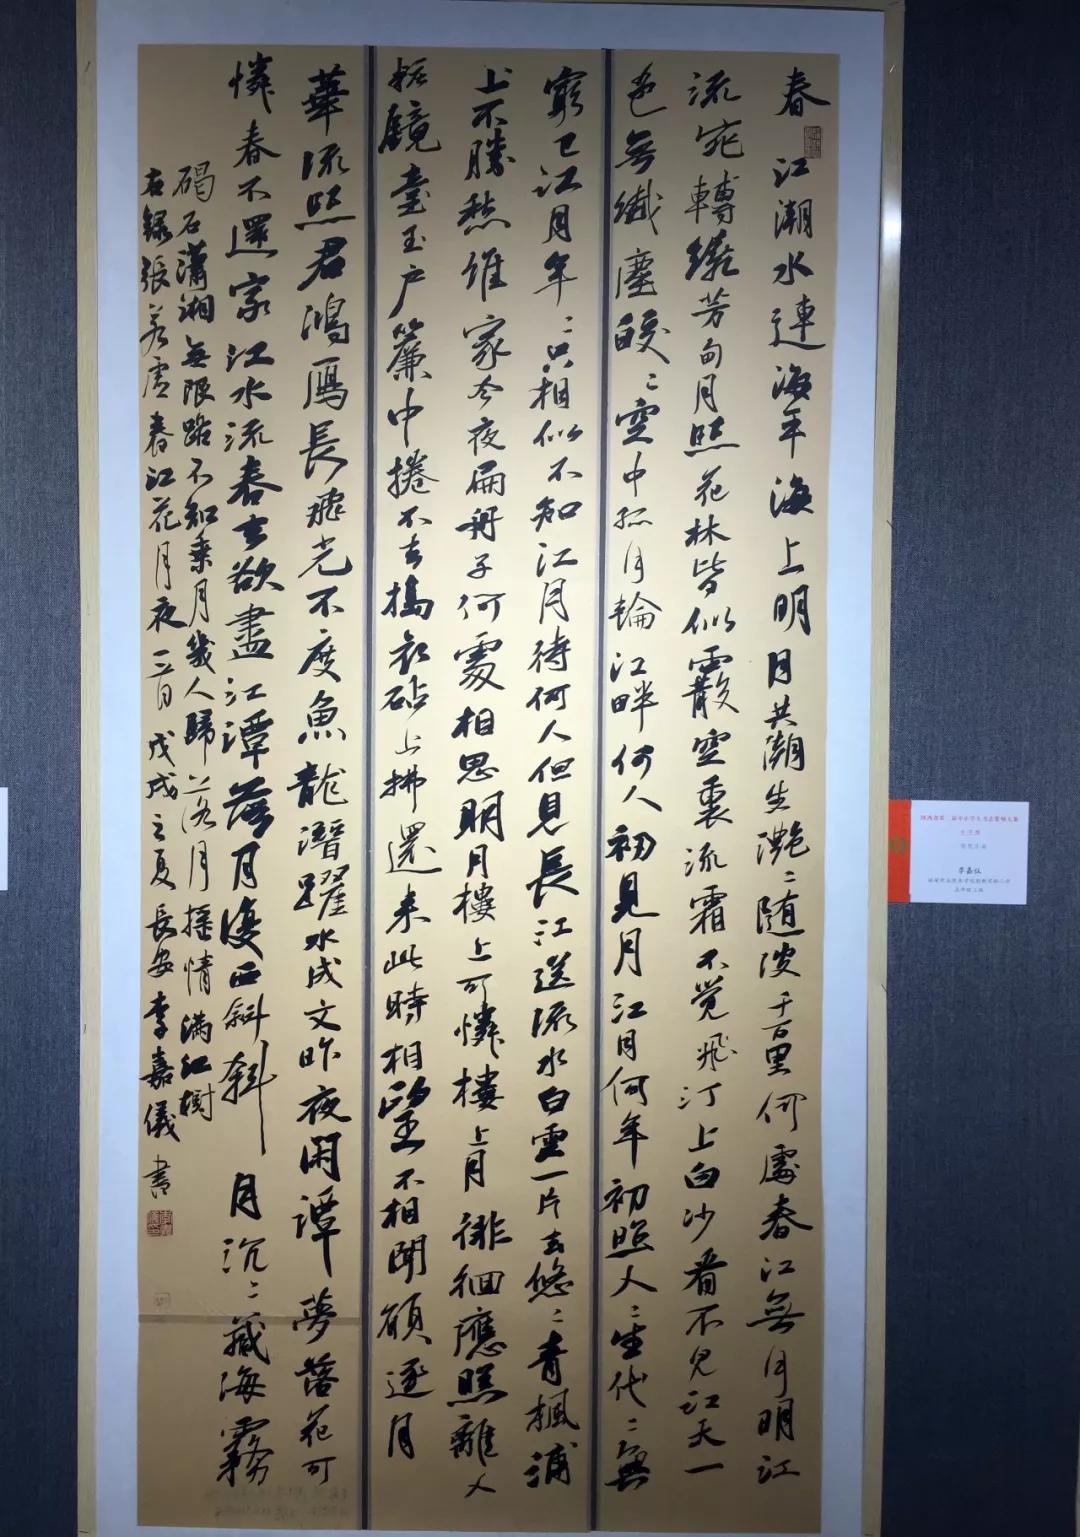 春江潮水連海平海上明月共潮生灩〻随波千万里何處春江無月明江
流宛轉繞芳甸月照花林皆似霰空裏流霜不覺飛汀上白沙看不見江天一
色無纖塵皎〻空中孤月輪江畔何人初見月江月何年初照人〻生代〻無
窮已江月年〻只相似不知江月待何人但見長江送流水白雲一片去悠〻青楓浦
上不勝愁誰家今夜扁舟子何處相思明月樓上可憐樓上月徘徊應照離人
粧鏡臺玉户簾中捲不去搗衣砧上拂還来此時相望不相聞願逐月
華流照君鴻雁長飛光不度魚龍潛躍水成文昨夜閑潭夢落花可
憐春不還家江水流春去欲盡江潭落月復西斜斜月沉〻藏海霧
碣石瀟湘無限路不知乘月幾人歸落月摇情满江樹
右録張若虚春江花月夜一首戊戌之夏長安李嘉儀書
李嘉仪